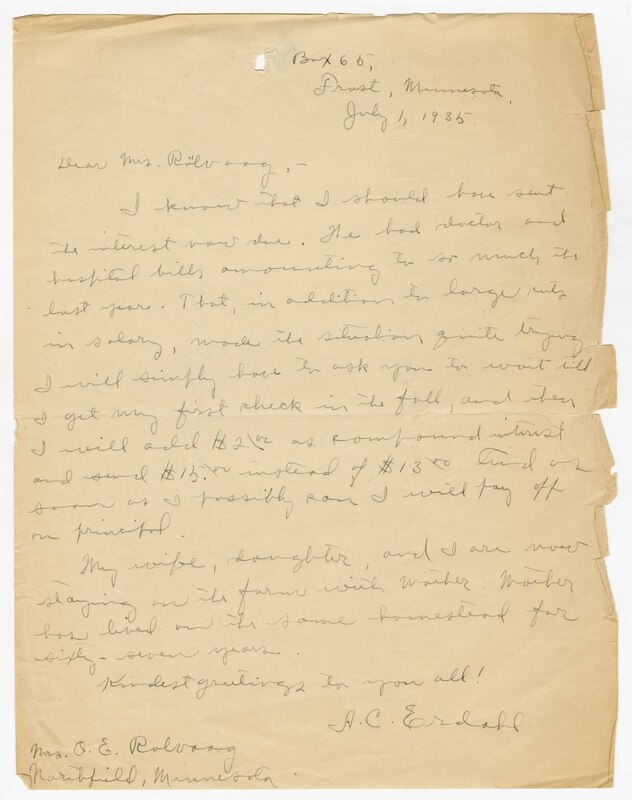 Box 65,
Frost, Minnesota,
July 1, 1935.
Dear Mrs. Rölvaag,-
I know that I should have sent
the interest now due. We had doctor and
hospital bills amounting to so much the
last year. That, in addition to large cuts
in salary, made the situation quite trying
I will simply have to ask you to wait till
I get my first check in the fall, and then
I will add $2.00 as compound interest
and send $15.00 instead of $13.00. And as
soon as I possibly can I will pay off
on principal.
My wife, daughter, and I are now
staying on the farm with Mother. Mother
has lived on the same homestead for
sixty-seven years.
Kindest greetings to you all!
A. C. Erdahl
Mrs. O. E. Rolvaag
Northfield, Minnesota.